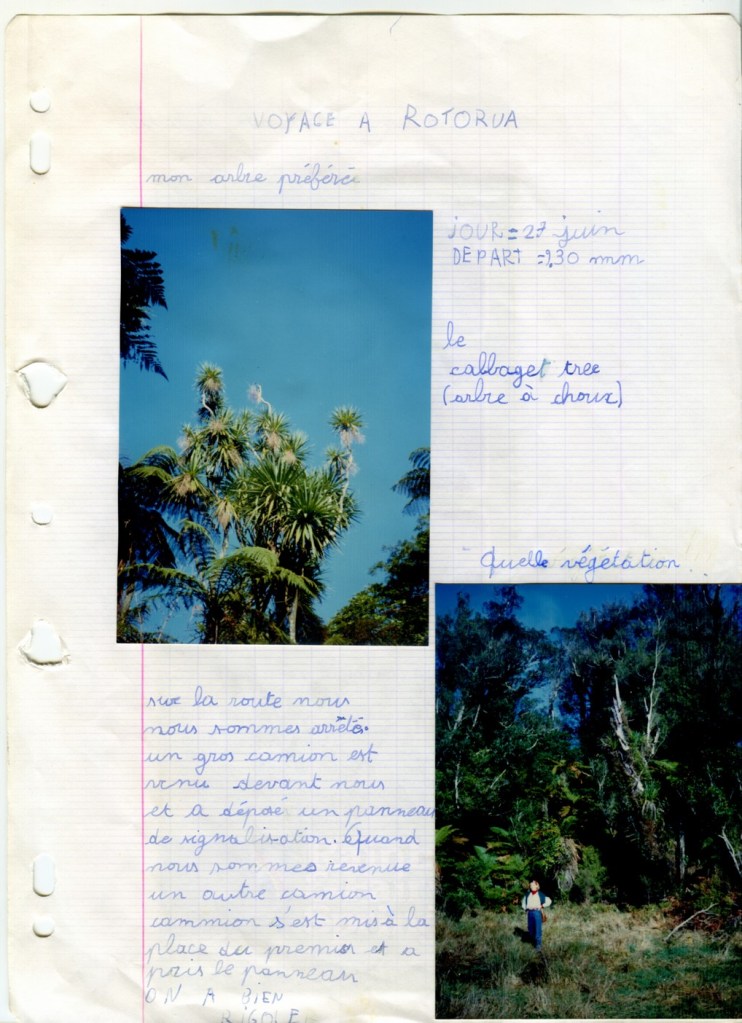 VOYAGE A ROTORUA
mon arbre préféré
JOUR = 27 juin
DEPART = 9,30 mm
le
cabbaget tree
(arbre à choux)
Quelle végétation !!!
sur la route nous
nous sommes arrêté.
un gros camion est
venu devant nous
et a déposé un panneau
de signalisation. Quand
nous sommes revenue
un autre camion
cammion s'est mis à la
place du premier et a
pris le panneau
ON A BIEN
RIGOLE